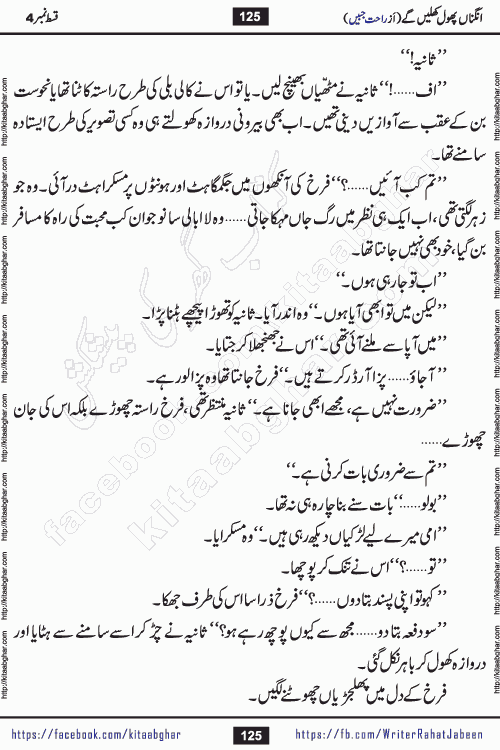 انگناں پھول کھلیں گے (از راحت جبیں) 125 قسط نمبر 4
’’ثانیہ!‘‘
’’اف......!‘‘ ثانیہ نے مٹھیاں بھینچ لیں۔ یا تو اس نے کالی بلی کی طرح راستہ کاٹنا تھا یا نحوست
بن کے عقب سے آوازیں دینی تھیں۔ اب بھی بیرونی دروازہ کھولتے ہی وہ کسی تصویر کی طرح ایستادہ
سامنے تھا۔
’’تم کب آئیں......؟‘‘ فرخ کی آنکھوں میں جگمگاہٹ اور ہونٹوں پر مسکراہٹ در آئی۔ وہ جو
زہر لگتی تھی، اب ایک ہی نظر میں رگ جاں مہکا جاتی......وہ لا ابالی سا نوجوان کب محبت کی راہ کا مسافر
بن گیا، خود بھی نہیں جانتا تھا۔
’’اب تو جا رہی ہوں۔‘‘
’’لیکن میں تو ابھی آیا ہوں۔‘‘ وہ اندر آیا۔ ثانیہ کو تھوڑا پیچھے ہٹنا پڑا۔
’’میں آپا سے ملنے آئی تھی۔‘‘ اس نے جھنجھلا کر جتایا۔
’’آ جاؤ...... پزا آرڈر کرتے ہیں۔‘‘ فرخ جانتا تھا وہ پزا لور ہے۔
’’ضرورت نہیں ہے، مجھے ابھی جانا ہے۔‘‘ ثانیہ منتظر تھی، فرخ راستہ چھوڑے بلکہ اس کی جان
چھوڑے......
’’تم سے ضروری بات کرنی ہے۔‘‘
’’بولو......‘‘ بات سنے بنا چارہ ہی نہ تھا۔
’’امی میرے لیے لڑکیاں دیکھ رہی ہیں۔‘‘ وہ مسکرایا۔
’’تو......؟‘‘ اس نے تنک کر پوچھا۔
’’کہو تو اپنی پسند بتا دوں......؟‘‘ فرخ ذرا سا اس کی طرف جھکا۔
’’سو دفعہ بتا دو...... مجھ سے کیوں پوچھ رہے ہو؟‘‘ ثانیہ نے چڑ کر اسے سامنے سے ہٹایا اور
دروازہ کھول کر باہر نکل گئی۔
فرخ کے دل میں پھلجھڑیاں چھوٹنے لگیں۔
https://facebook.com/kitaabghar 125 https://fb.com/WriterRahatJabeen
http://kitaabghar.com
کتاب گھر کی پیشکش
facebook.com/kitaabghar
kitaabghar.com